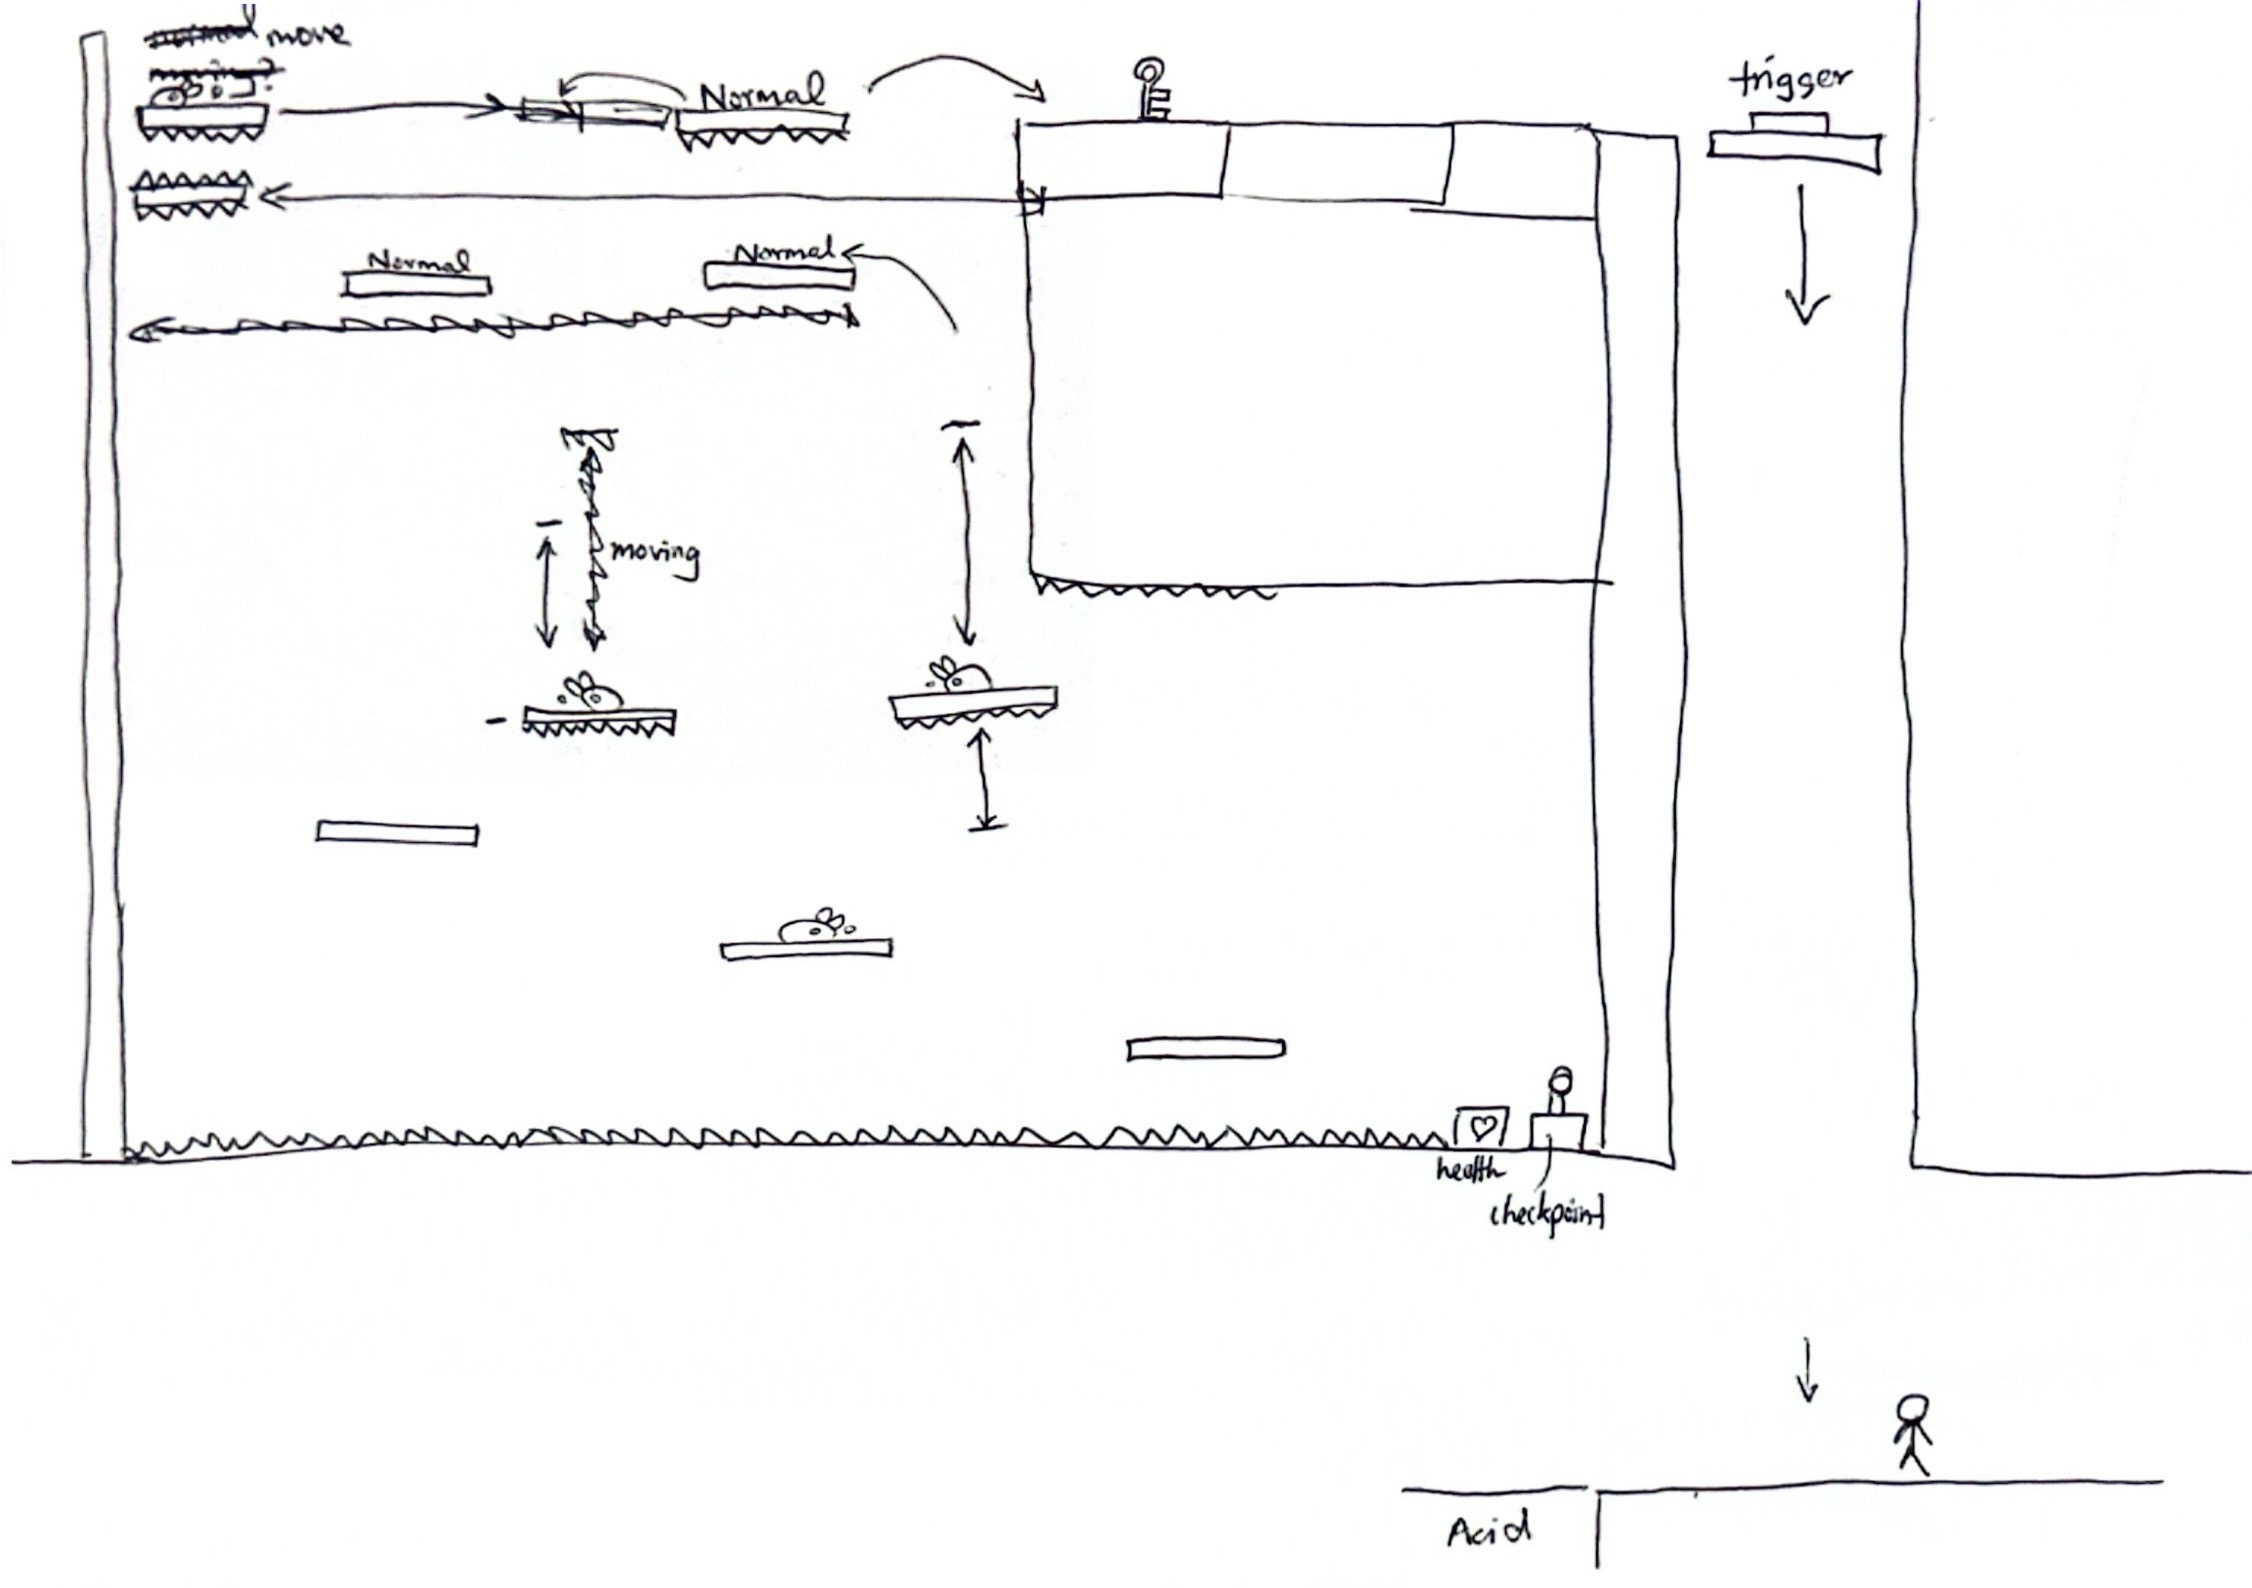 move
Normal
trigger
Normal
Normal
moving
health
checkpoint
Acid